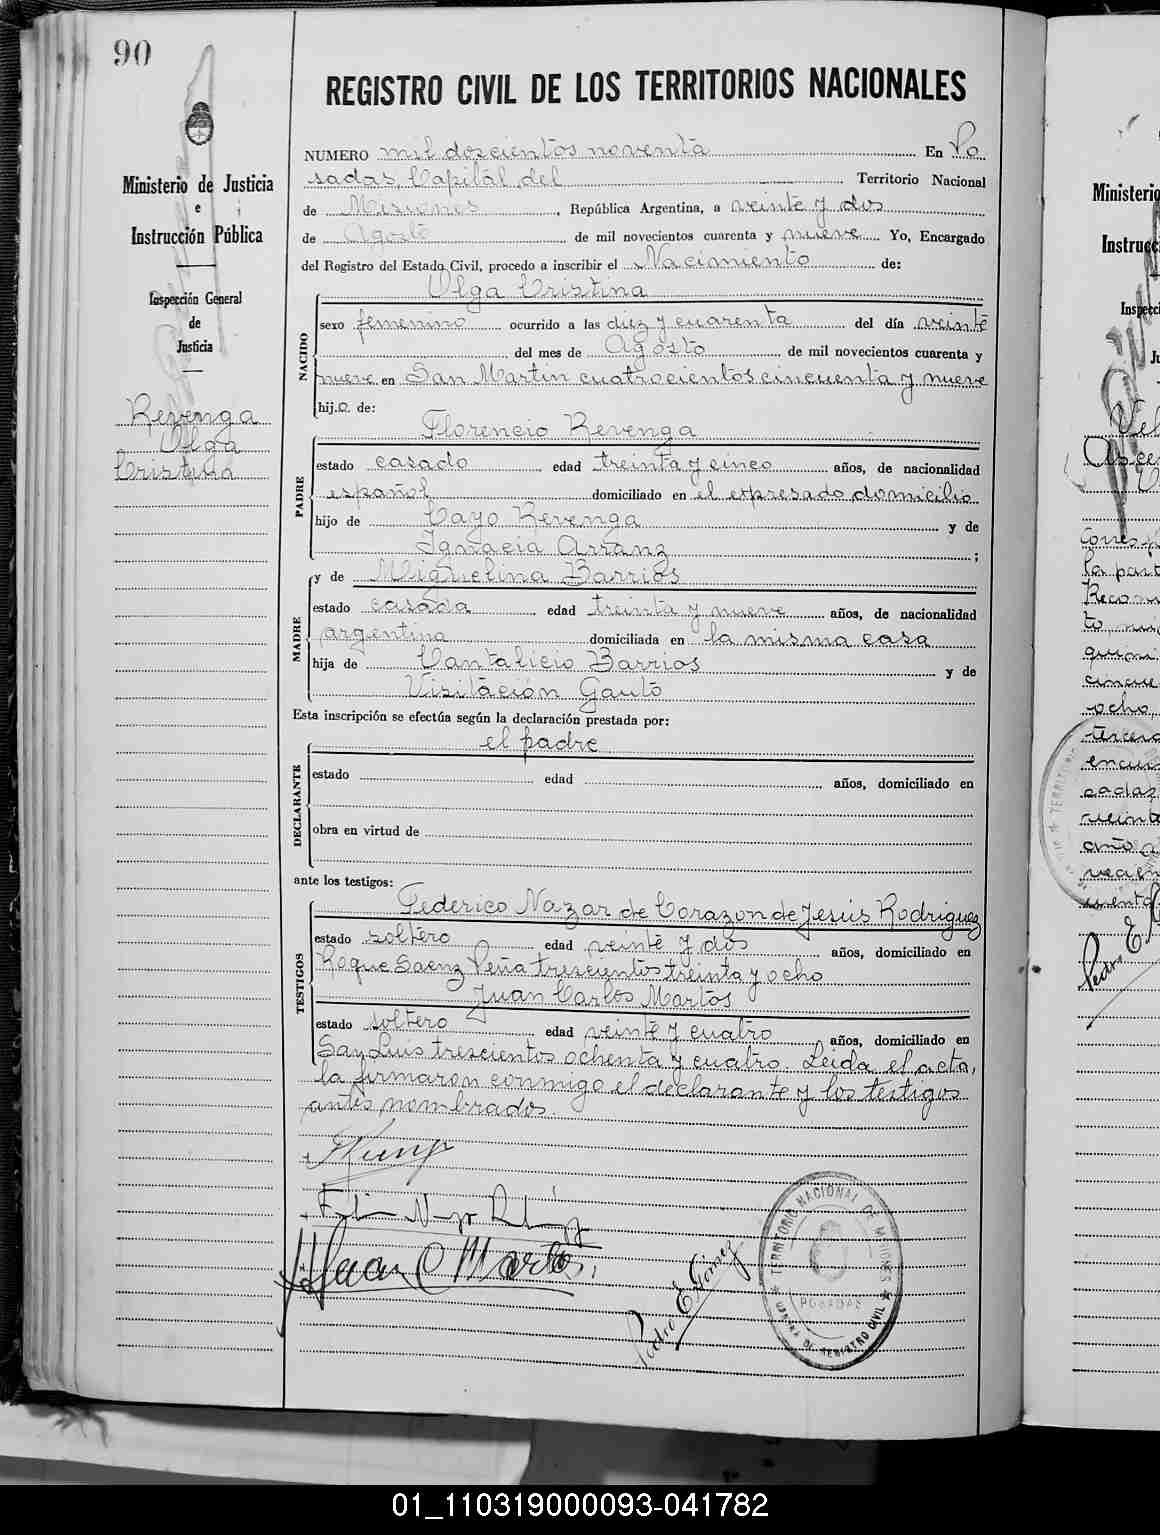 90
Ministerio de Justicia
e
Instrucción Pública
Inspección General
de
Justicia
Revenga
Olga
Cristina
REGISTRO CIVIL DE LOS TERRITORIOS NACIONALES
NUMERO mil doscientos noventa En Po
sadas, Capital del Territorio Nacional
de Misiones, República Argentina, a veinte y dos
de Agosto de mil novecientos cuarenta y nueve Yo, Encargado
del Registro del Estado Civil, procedo a inscribir el Nacimiento de:
Olga Cristina
NACIDO
sexo femenino ocurrido a las diez y cuarenta del día veinte
del mes de Agosto de mil novecientos cuarenta y
nueve en San Martin cuatrocientos cincuenta y nueve
hij.a. de:
Florencio Revenga
PADRE
estado casado edad treinta y cinco años, de nacionalidad
español domiciliado en el expresado domicilio
hijo de Cayo Revenga y de
Ignacia Arranz ;
y de Miguelina Barrios
MADRE
estado casada edad treinta y nueve años, de nacionalidad
argentina domiciliada en la misma casa
hija de Cantalicio Barrios y de
Visitación Gauto
Esta inscripción se efectúa según la declaración prestada por:
el padre
DECLARANTE
estado edad años, domiciliado en
obra en virtud de
ante los testigos:
Federico Nazar de Corazon de Jesús Rodriguez
TESTIGOS
estado soltero edad veinte y dos años, domiciliado en
Roque Saenz Peña trescientos treinta y ocho
Juan Carlos Martos
estado soltero edad veinte y cuatro años, domiciliado en
San Luis trescientos ochenta y cuatro. Leida el acta,
la firmaron conmigo el declarante y los testigos
antes nombrados.
Juan C Martos
Pedro E. Gómez
TERRITORIO NACIONAL DE MISIONES
POSADAS
REGISTRO CIVIL
Ministerio
Instrucc
Inspecci
Ju
la part
Recono
cincue
ocho
tercero
año
Pedro E.
01_110319000093-041782